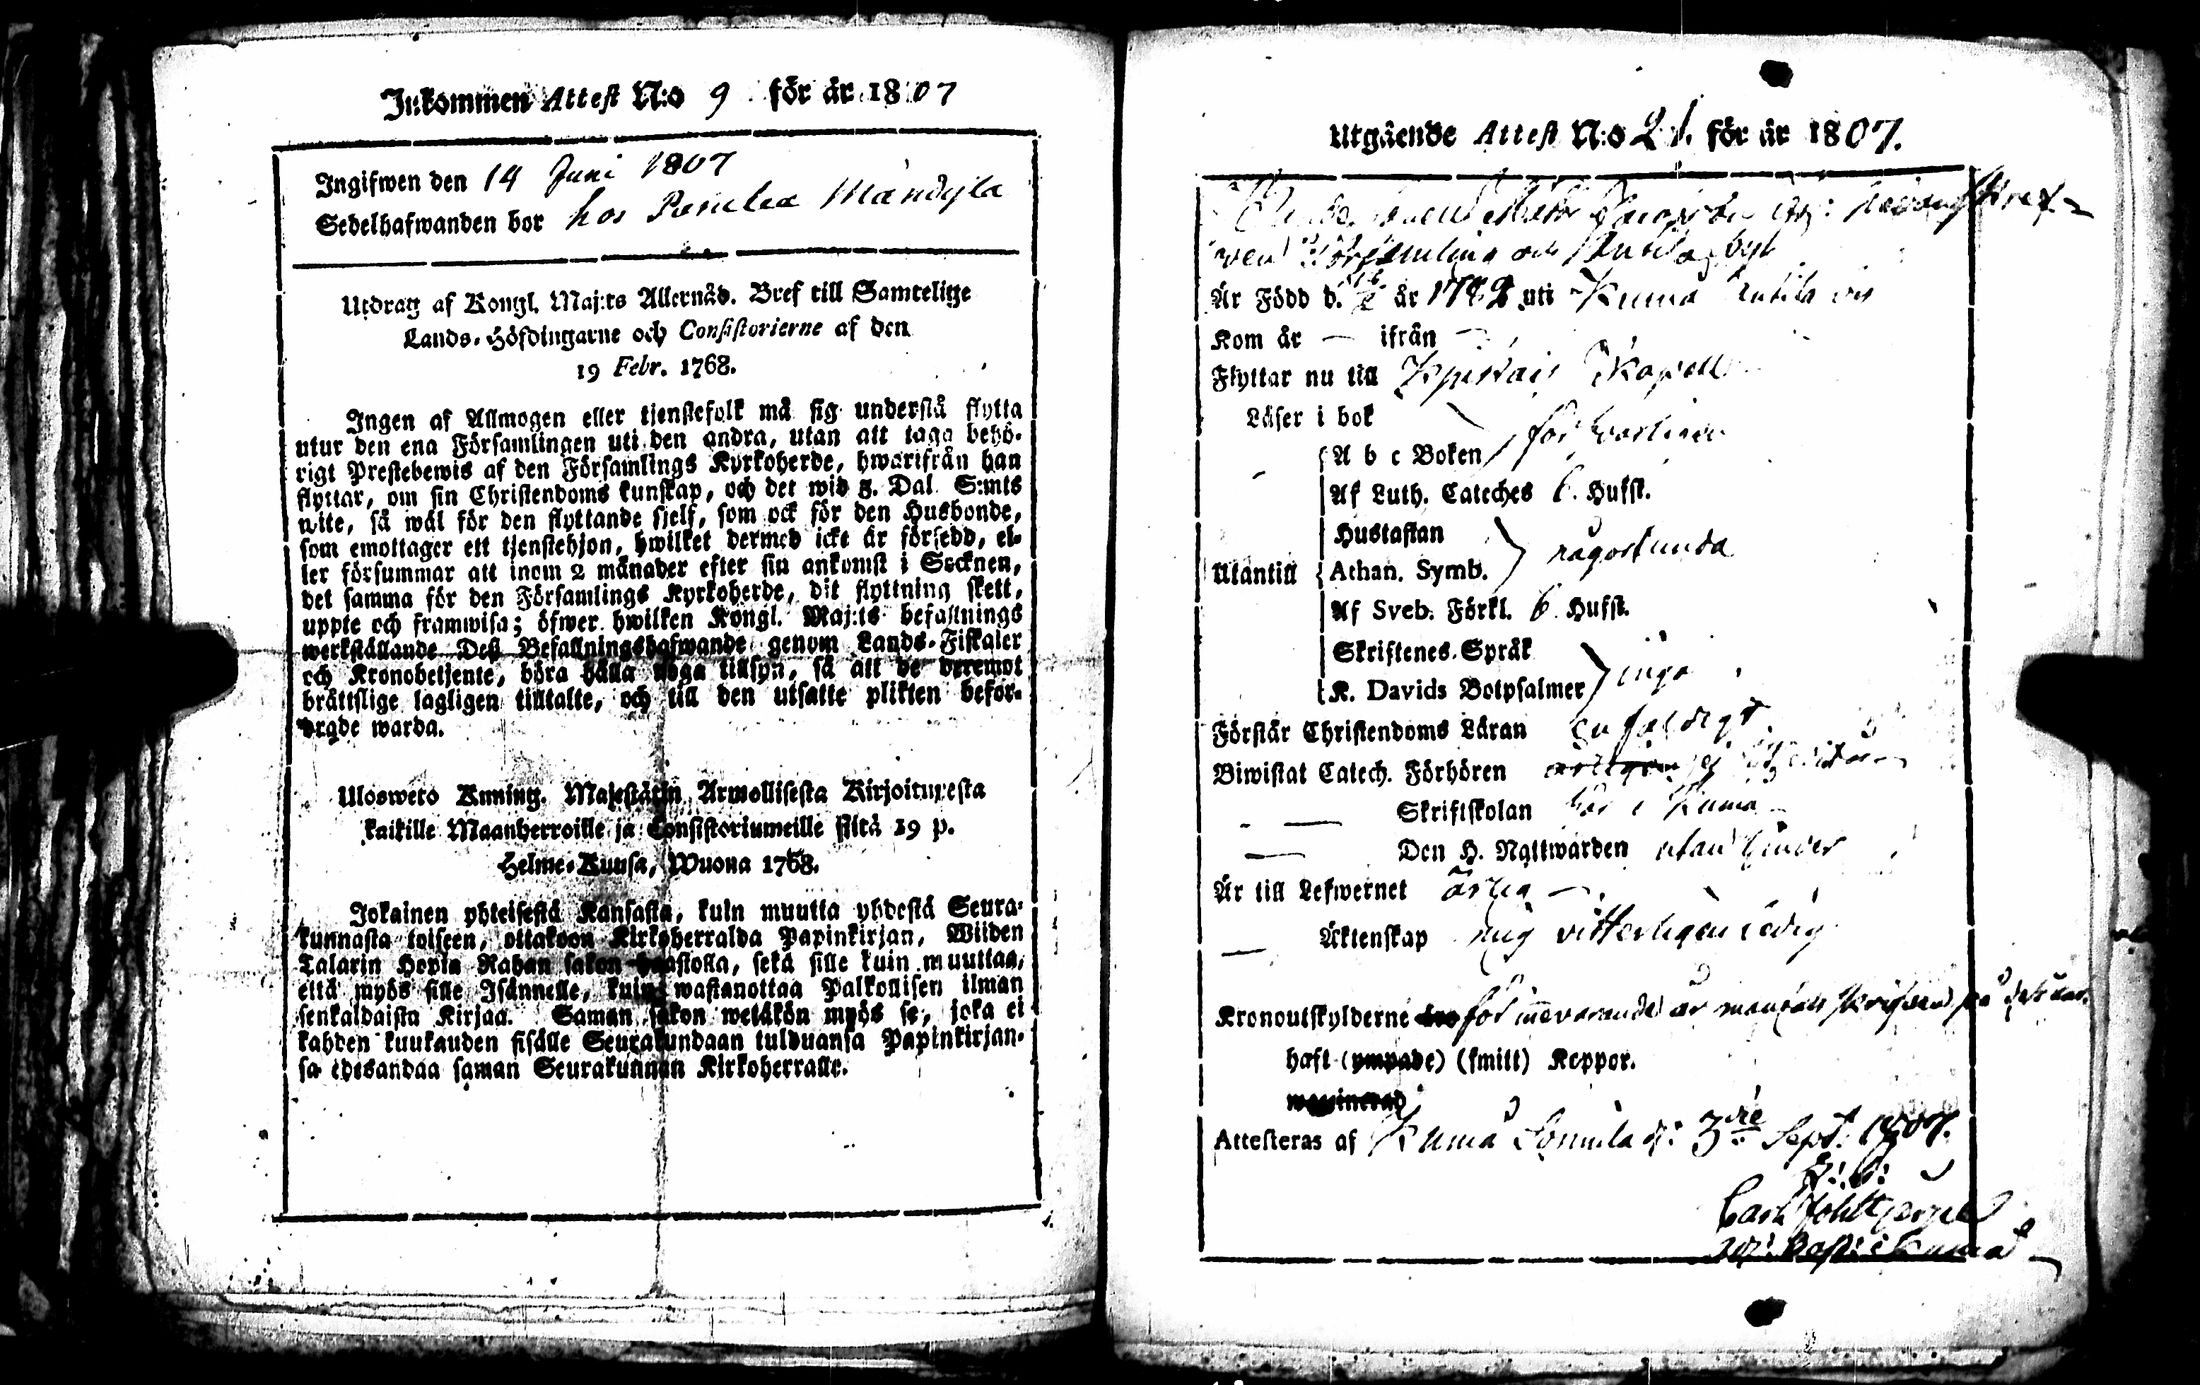 Inkommen Attest N:o 9 för år 1807
Ingifwen den 14 Juni 1807
Sedelhafwanden bor hos Mändylä
Utdrag af Kongl. Maj:ts Allernåd. Bref till Samtelige
Lands-Höfdingarne och Consistorierne af den
19 Febr. 1768.
Ingen af Allmogen eller tjenstefolk må sig understå flytta
utur den ena Församlingen uti den andra, utan att taga behö-
rigt Prestebewis af den Församlings Kyrkoherde, hwarifrån han
flyttar, om sin Christendoms kunskap, och det wid 5. Dal. S:mts
wite, så wäl för den flyttande sjelf, som ock för den Husbonde,
som emottager ett tjenstehjon, hwilket dermed icke är försedd, el-
ler försummar att inom 2 månader efter sin ankomst i Socknen,
det samma för den Församlings Kyrkoherde, dit flyttning skett,
uppte och framwisa; öfwer hwilken Kongl. Maj:ts befallnings
werkställande Deß Befallningshafwande genom Lands-Fiskaler
och Kronobetjente, böra hålla noga tillsyn, så att de deremot
bråttslige lagligen tilltalte, och till den utsatte plikten befor-
drade warda.
Ulosweto Kuning. Majestätin Armollisesta Kirjoituxesta
kaikille Maanherroille ja Consistoriumeille siltä 19 p.
Helme-Kuusa, Wuona 1768.
Jokainen yhteisestä Kansasta, kuin muutta yhdestä Seura-
kunnasta toiseen, ottakoon Kirkoherralda Papinkirjan, Wiiden
Talarin Hopia Rahan sakon haastolla, sekä sille kuin muuttaa,
että myös sille Isännelle, kuin wastanottaa Palkollisen ilman
senkaldaista Kirjaa. Saman sakon wetäkön myös se, joka ei
kahden kuukauden sisälle Seurakundaan tulduansa Papinkirjan-
sa edesandaa saman Seurakunnan Kirkoherralle.
Utgående Attest N:o 21. för år 1807.
Är Född d. år uti Kumå
Kom år — ifrån —
Flyttar nu till Kapell
Läser i bok
A b c Boken försvarligen
Af Luth. Cateches 6. Hufst.
Hustaflan
Utantill Athan. Symb. någorlunda
Af Sveb. Förkl. 6. Hufst.
Skriftenes Språk
K. Davids Botpsalmer inga
Förstår Christendoms Läran enfaldigt
Biwistat Catech. Förhören
— Skriftskolan här i Kumo
— Den H. Nattwarden utan hinder
Är till Lefwernet ärlig —
— Äktenskap mig vitterligen ledig
Kronoutskylderne för innevarande år
haft (ympade) (smitt) Koppor.
Attesteras af Kumå Sonnila d: 3die Sept: 1807.
Carl
i Kumå